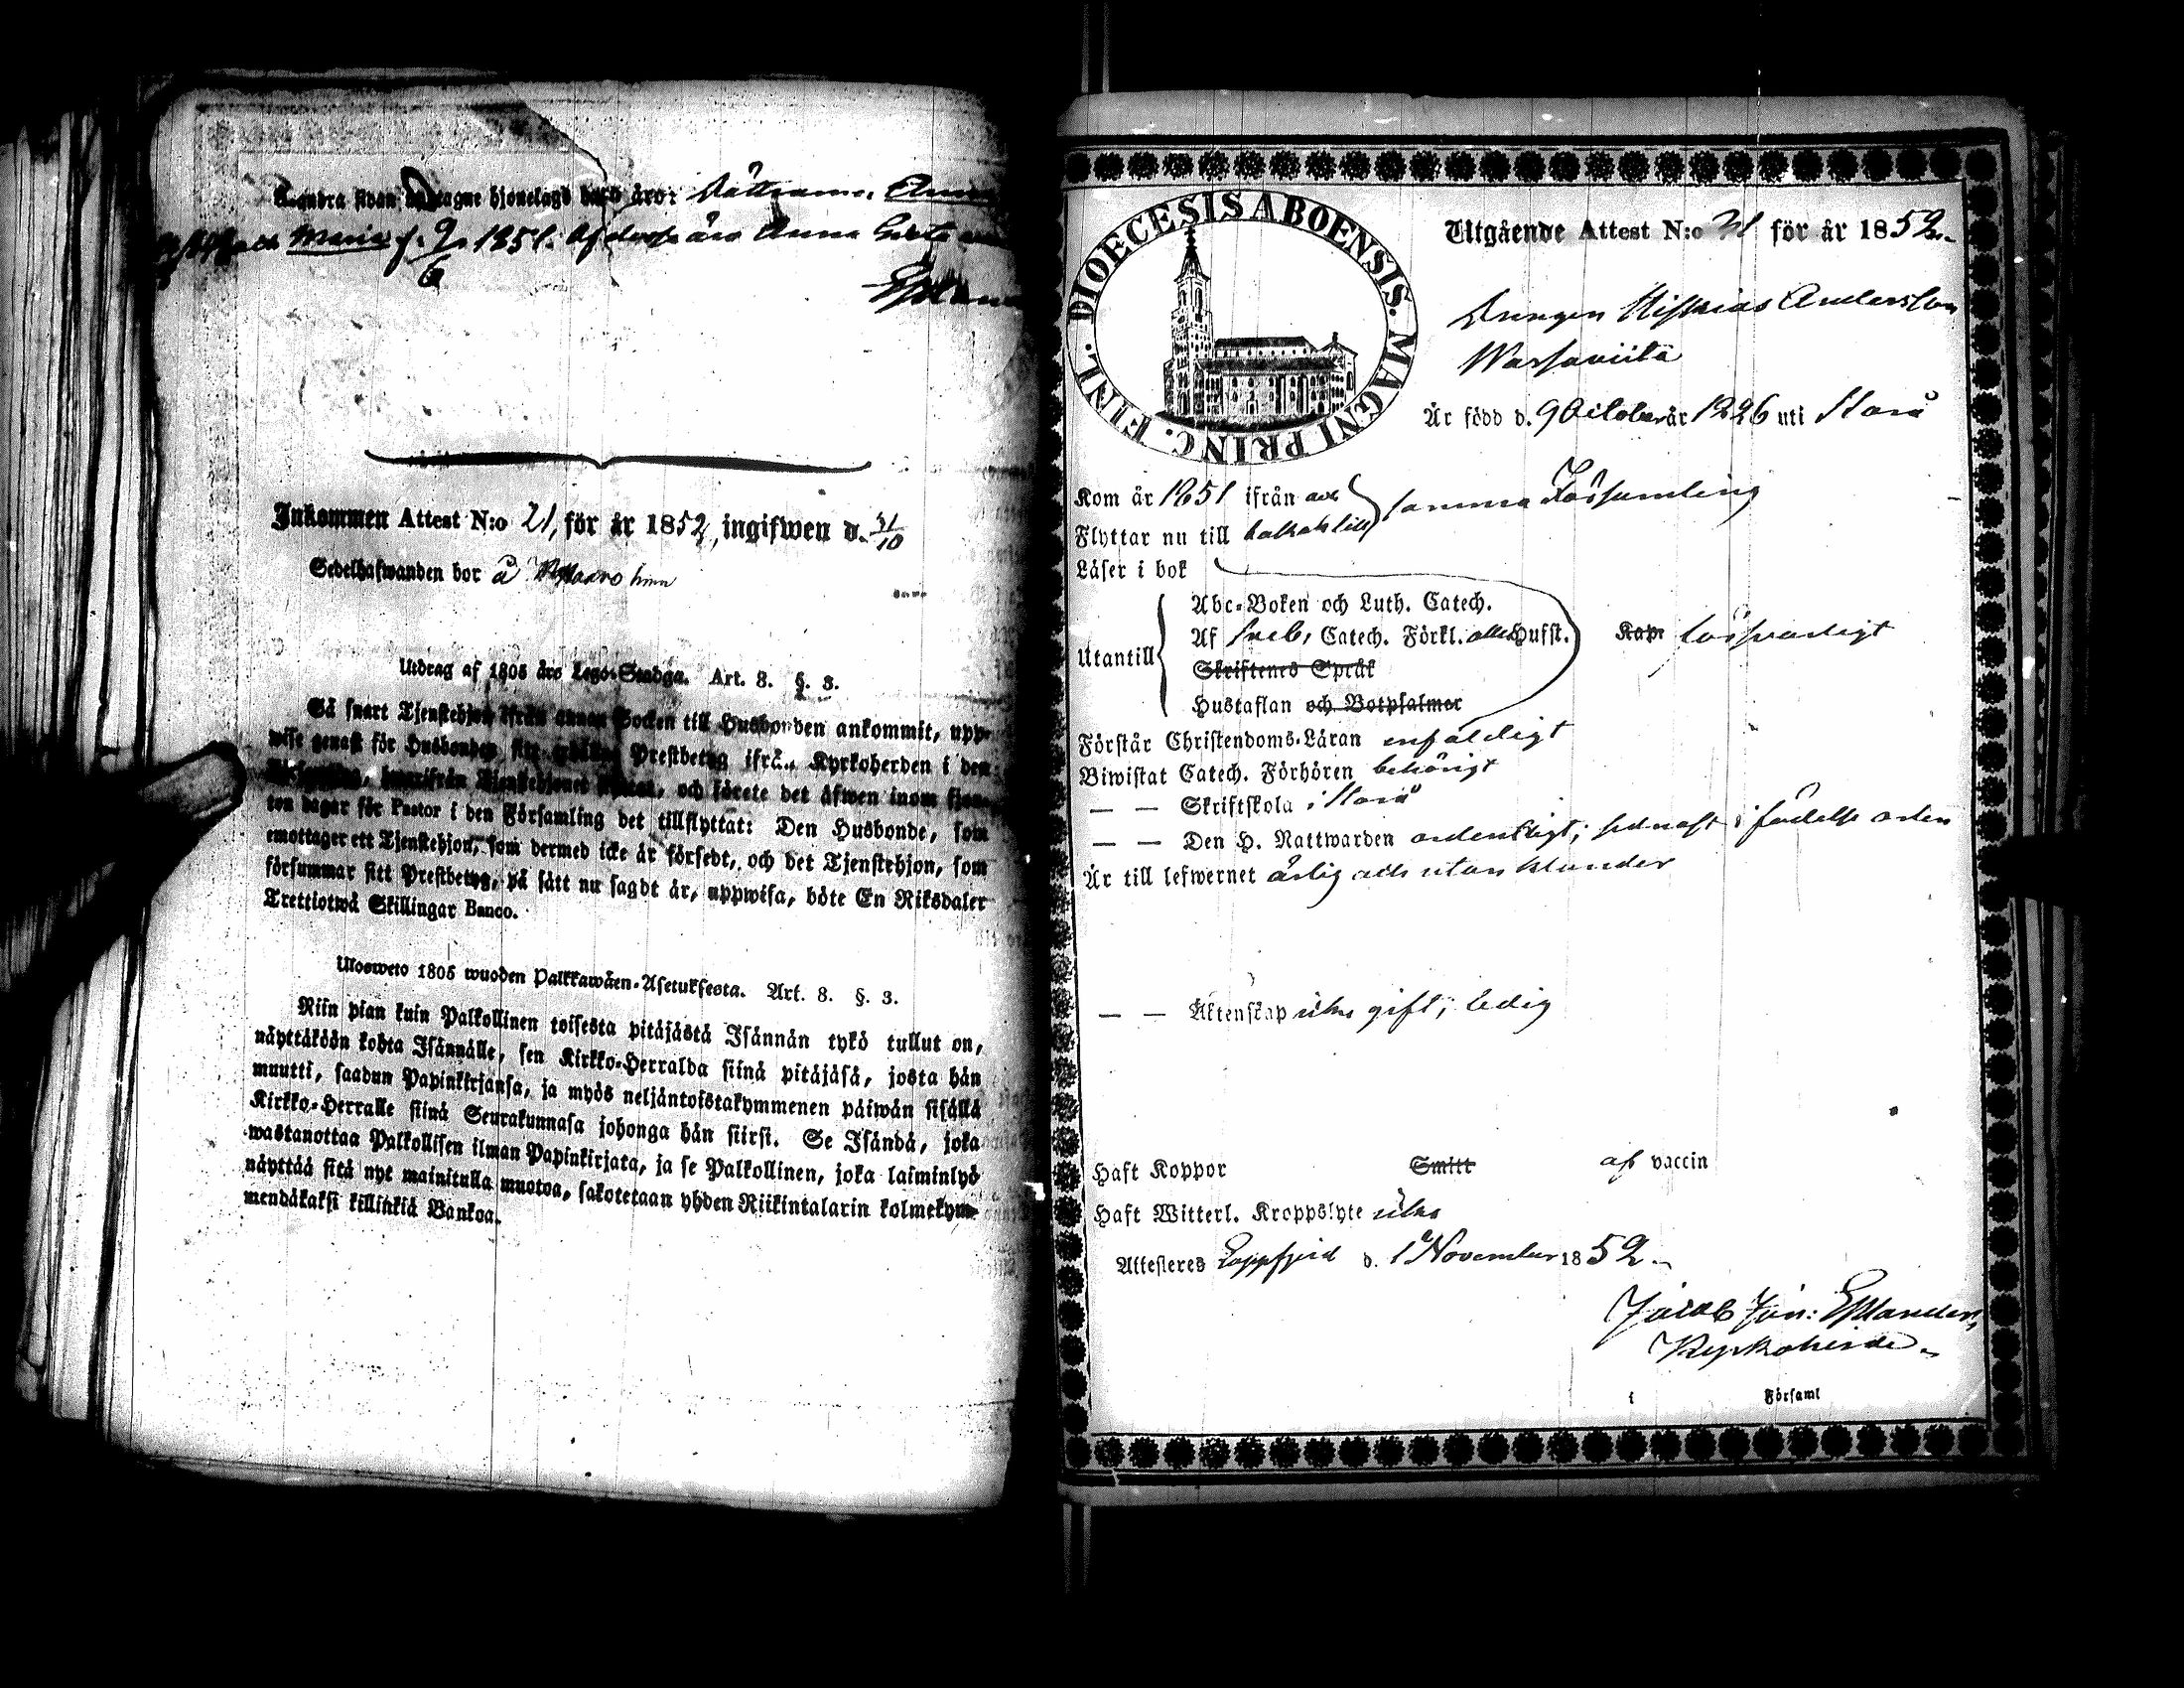 sidan äro: Döttrarna, Anna
Maria f. 9/6 1851. af dessa äro Anna Greta
Inkommen Attest N:o 21, för år 1852, ingifwen d. 31/10
Sedelhafwanden bor å
Utdrag af 1805 års Lego-Stadga. Art. 8. §. 3.
Så snart Tjenstehjon ifrån annan Socken till Husbonden ankommit, upp-
wise genast för Husbonden sitt Prestbetyg ifrån Kyrkoherden i den
Församling, hwarifrån Tjenstehjonet flyttat, och förete det äfwen inom fjor-
ton dagar för Pastor i den Församling det tillflyttat: Den Husbonde, som
emottager ett Tjenstehjon, som dermed icke är försedt, och det Tjenstehjon, som
försummar sitt Prestbetyg, på sätt nu sagdt är, uppwisa, böte En Riksdaler
Trettiotwå Skillingar Banco.
Ulosweto 1805 wuoden Palkkawäen-Asetuksesta. Art. 8. §. 3.
Niin pian kuin Palkollinen toisesta pitäjästä Isännän tykö tullut on,
näyttäköön kohta Isännälle, sen Kirkko-Herralda siinä pitäjäsä, josta hän
muutti, saadun Papinkirjansa, ja myös neljäntoistakymmenen päiwän sisällä
Kirkko-Herralle siinä Seurakunnasa johonga hän siirsi. Se Isändä, joka
wastanottaa Palkollisen ilman Papinkirjata, ja se Palkollinen, joka laiminlyö
näyttää sitä nyt mainitulla muotoa, sakotetaan yhden Riikintalarin kolmekym-
mendäkaksi killinkiä Bankoa.
DIOECESIS ABOENSIS. MAGNI PRINC. FINL.
Utgående Attest N:o 31 för år 1852.
Drengen Andersson
Är född d. 9 October år 1826 uti Storå
Kom år 1851 ifrån och
Flyttar nu till samma Församling
Läser i bok
Utantill
Abc-Boken och Luth. Catech.
Af Sveb, Catech. Förkl. alla Hufst.
Skriftenes Språk
Hustaflan och Botpsalmer
Kap: försvarligt
Förstår Christendoms-Läran enfaldigt
Biwistat Catech. Förhören behörigt
— — Skriftskola i Storå
— — Den H. Nattwarden ordentligt; sednast i födelse orten
Är till lefwernet ärlig och utan klander
— — Äktenskap icke gift, ledig
Haft Koppor Smitt af vaccin
Haft Witterl. Kroppslyte icke
Attesteres Lappfjerd d. 1 November 1852.
Jacob Jon: Estlander,
Kyrkoherde.
i Församl